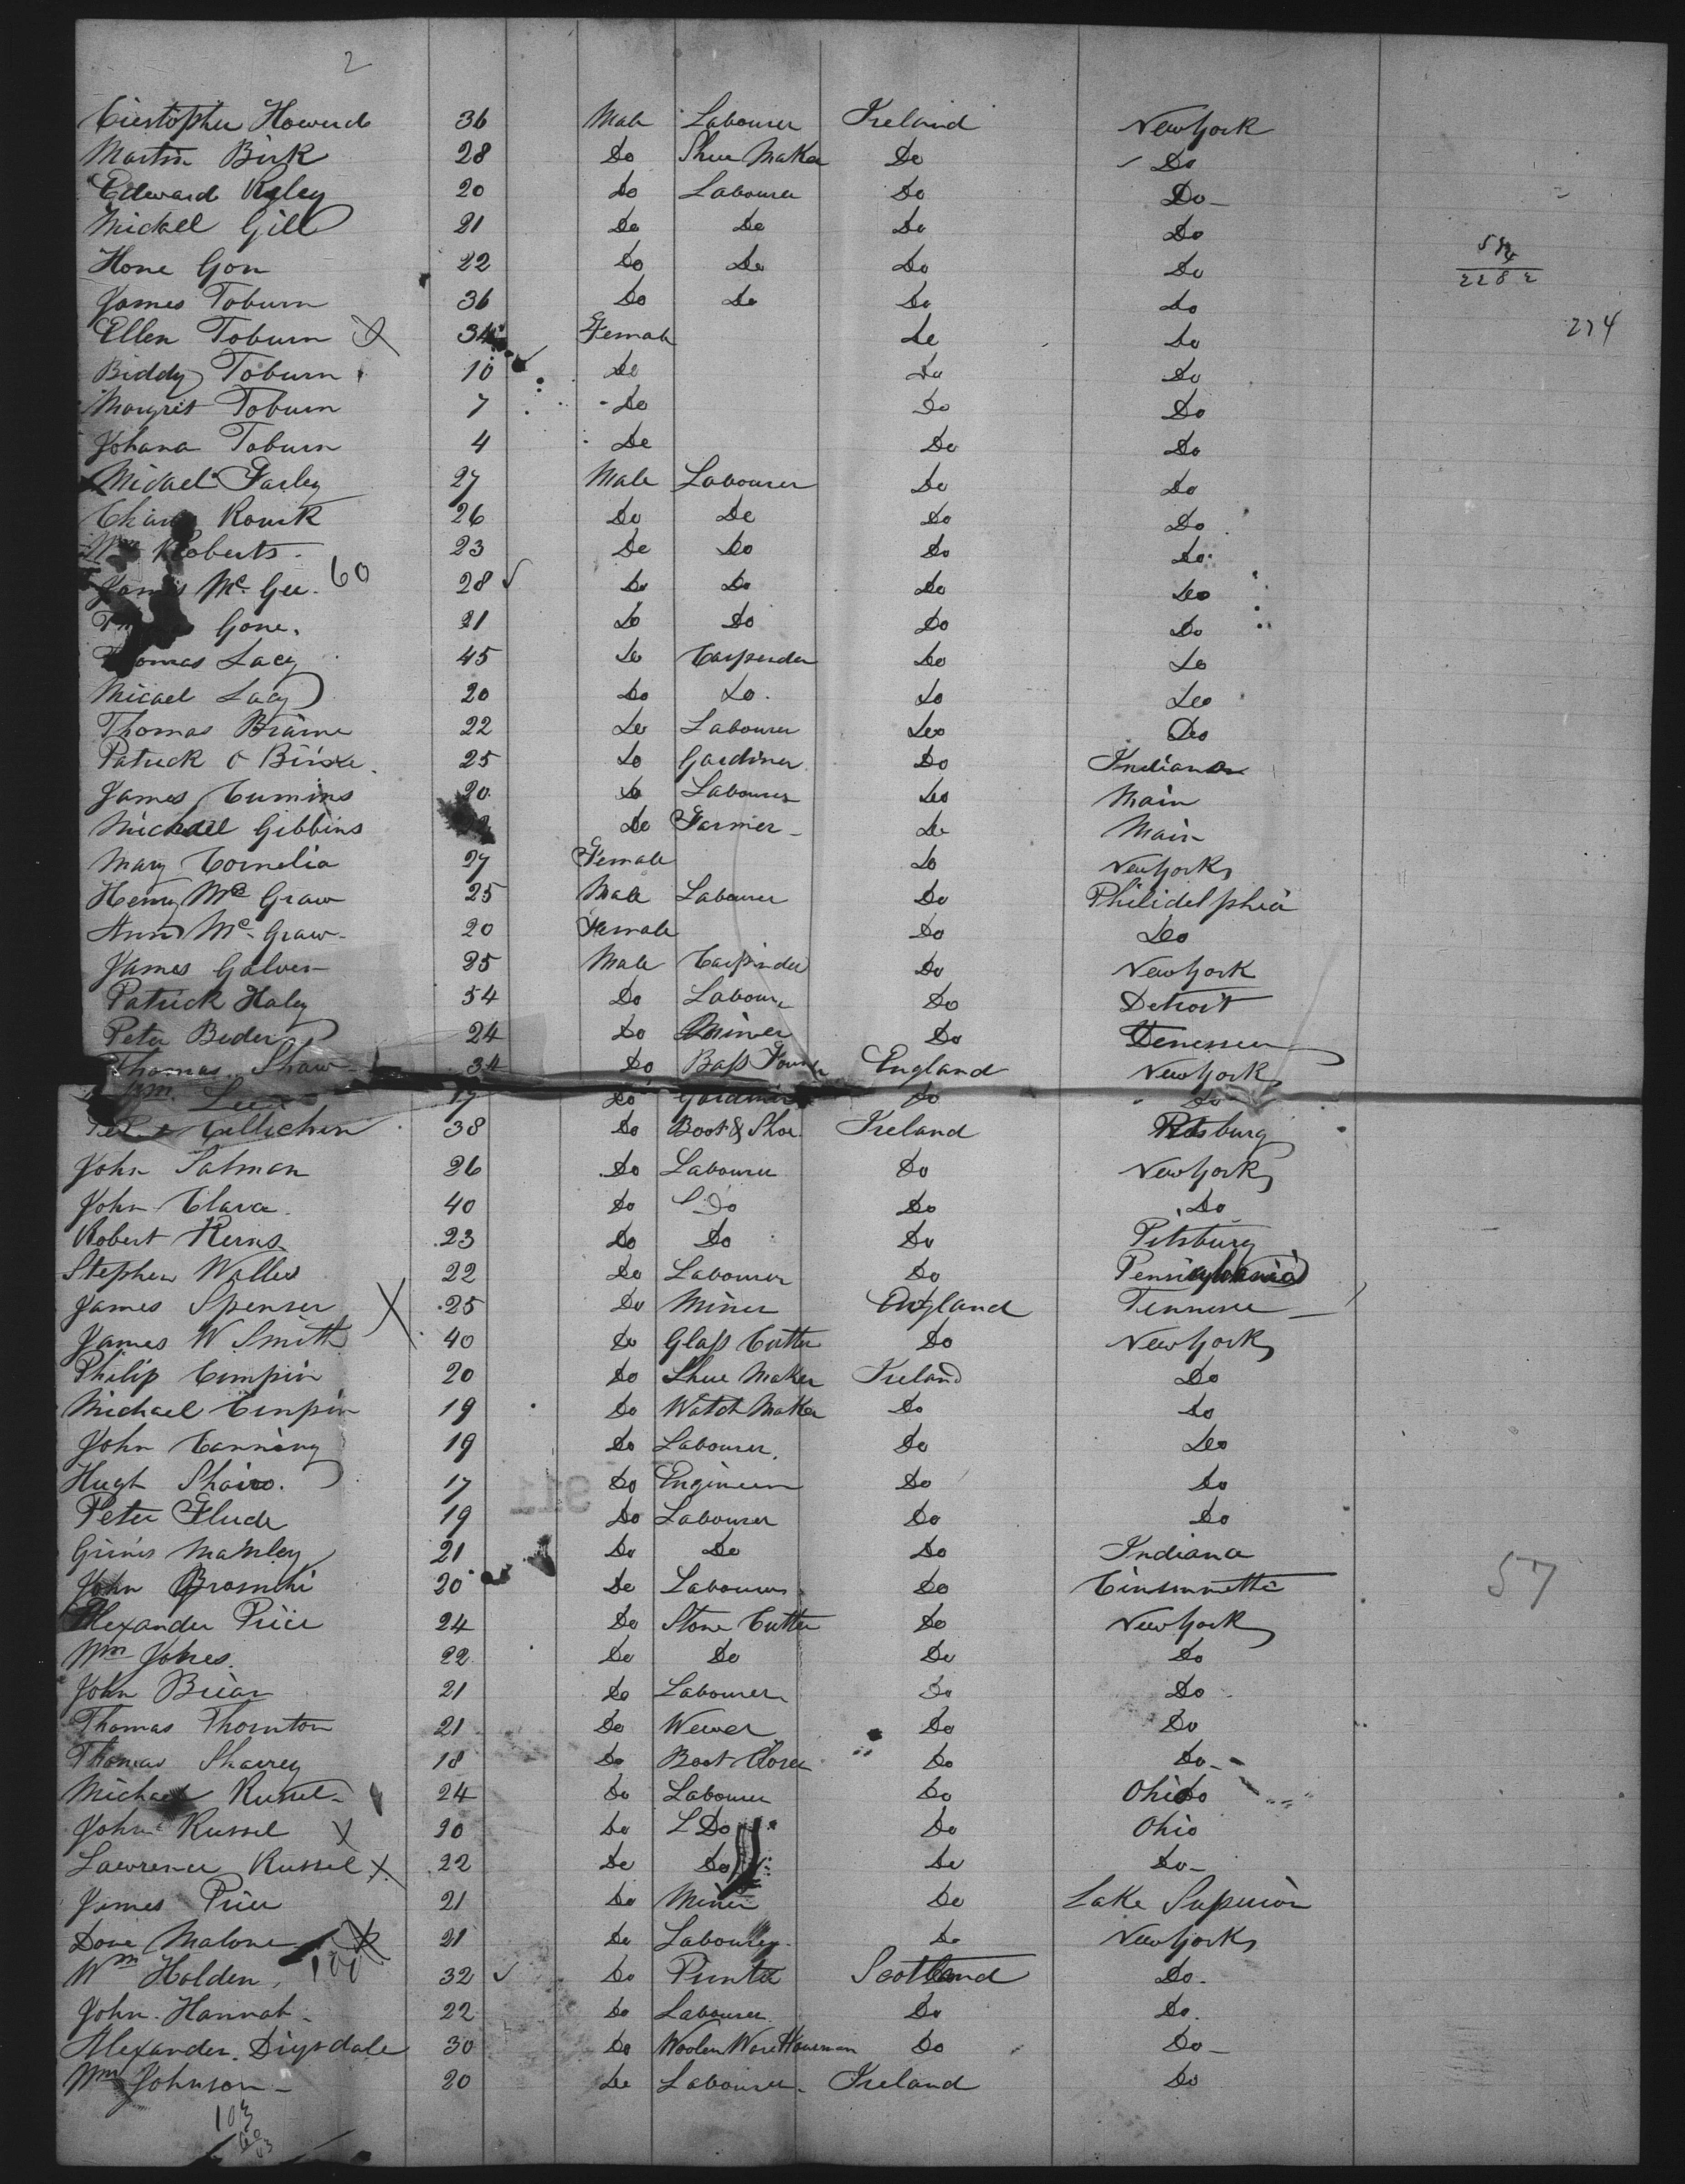 2
Ciestopher Howerd 36 Male Labourer Ireland New York
Martin Birk 28 Do Shue Maker Do Do
Edward Ryley 20 Do Labourer Do Do
Mickell Gill 21 Do Do Do Do
Hone Gon 22 Do Do Do Do
James Toburn 36 Do Do Do Do
Ellen Toburn X 34 Female Do Do
274
Biddy Toburn 10 Do Do Do
Margret Toburn 7 Do Do Do
Johana Toburn 4 Do Do Do
Mickael Farley 27 Male Labourer Do Do
Rourk 26 Do Do Do Do
Wm Roberts 23 Do Do Do Do
James Mc Gee 60 28 Do Do Do Do
Gone 21 Do Do Do Do
Thomas Lacy 45 Do Carpender Do Do
Micael Lacy 20 Do Do Do Do
Thomas Braine 22 Do Labourer Do Do
Patrick O 25 Do Gardiner Do Indiana
James Cumins 20 Do Labourer Do Main
Michall Gibbins Do Farmer Do Main
Mary Cornelia 27 Female Do New York
Henry Mc Graw 25 Male Labourer Do Philidelphia
Ann Mc Graw 20 Female Do Do
James Galven 25 Male Carpinder Do New York
Patrick Haley 54 Do Labour Do Detroit
Peter Beder 24 Do Miner Do
Thomas Shaw 34 Do England New York
Wm 17 Do Gardiner Do Do
38 Do Boot & Shoe Ireland Pitsburg
John Salman 26 Do Labourer Do New York
John Clara 40 Do Do Do Do
Robert Kerns 23 Do Do Do Pitsburg
Stephen Walles 22 Do Labourer Do Pensiylvania
James Spenser X 25 Do Miner England Tennesee
James W Smith 40 Do Glass Cutter Do New York
Philip Cimpin 20 Do Shue Maker Ireland Do
Michael Cinpin 19 Do Watch Maker Do Do
John Canning 19 Do Labourer Do Do
Hugh 17 Do Engineer Do Do
Peter Flude 19 Do Labourer Do Do
Grims Manley 21 Do Do Do Indiana
John 20 Do Labourer Do Cinsinnetti
57
Alexander Price 24 Do Stone Cutter Do New York
Wm Jones 22 Do Do Do Do
John Briar 21 Do Labourer Do Do
Thomas Thornton 21 Do Wever Do Do
Thomas Sharrey 18 Do Boot Closer Do Do
Michael Russel 24 Do Labourer Do Ohio
John Russel X 20 Do Do Do Ohio
Lawrence Russel X 22 Do Do Do Do
James Price 21 Do Miner Do Lake Superior
Done Malone X 21 Do Labourer Do New York
Wm Holden 100 32 Do Printer Scotland Do
John Hannah 22 Do Labourer Do Do
Alexander Drysdale 30 Do Woolen Ware Houseman Do Do
Wm Johnson 20 Do Labourer Ireland Do
103